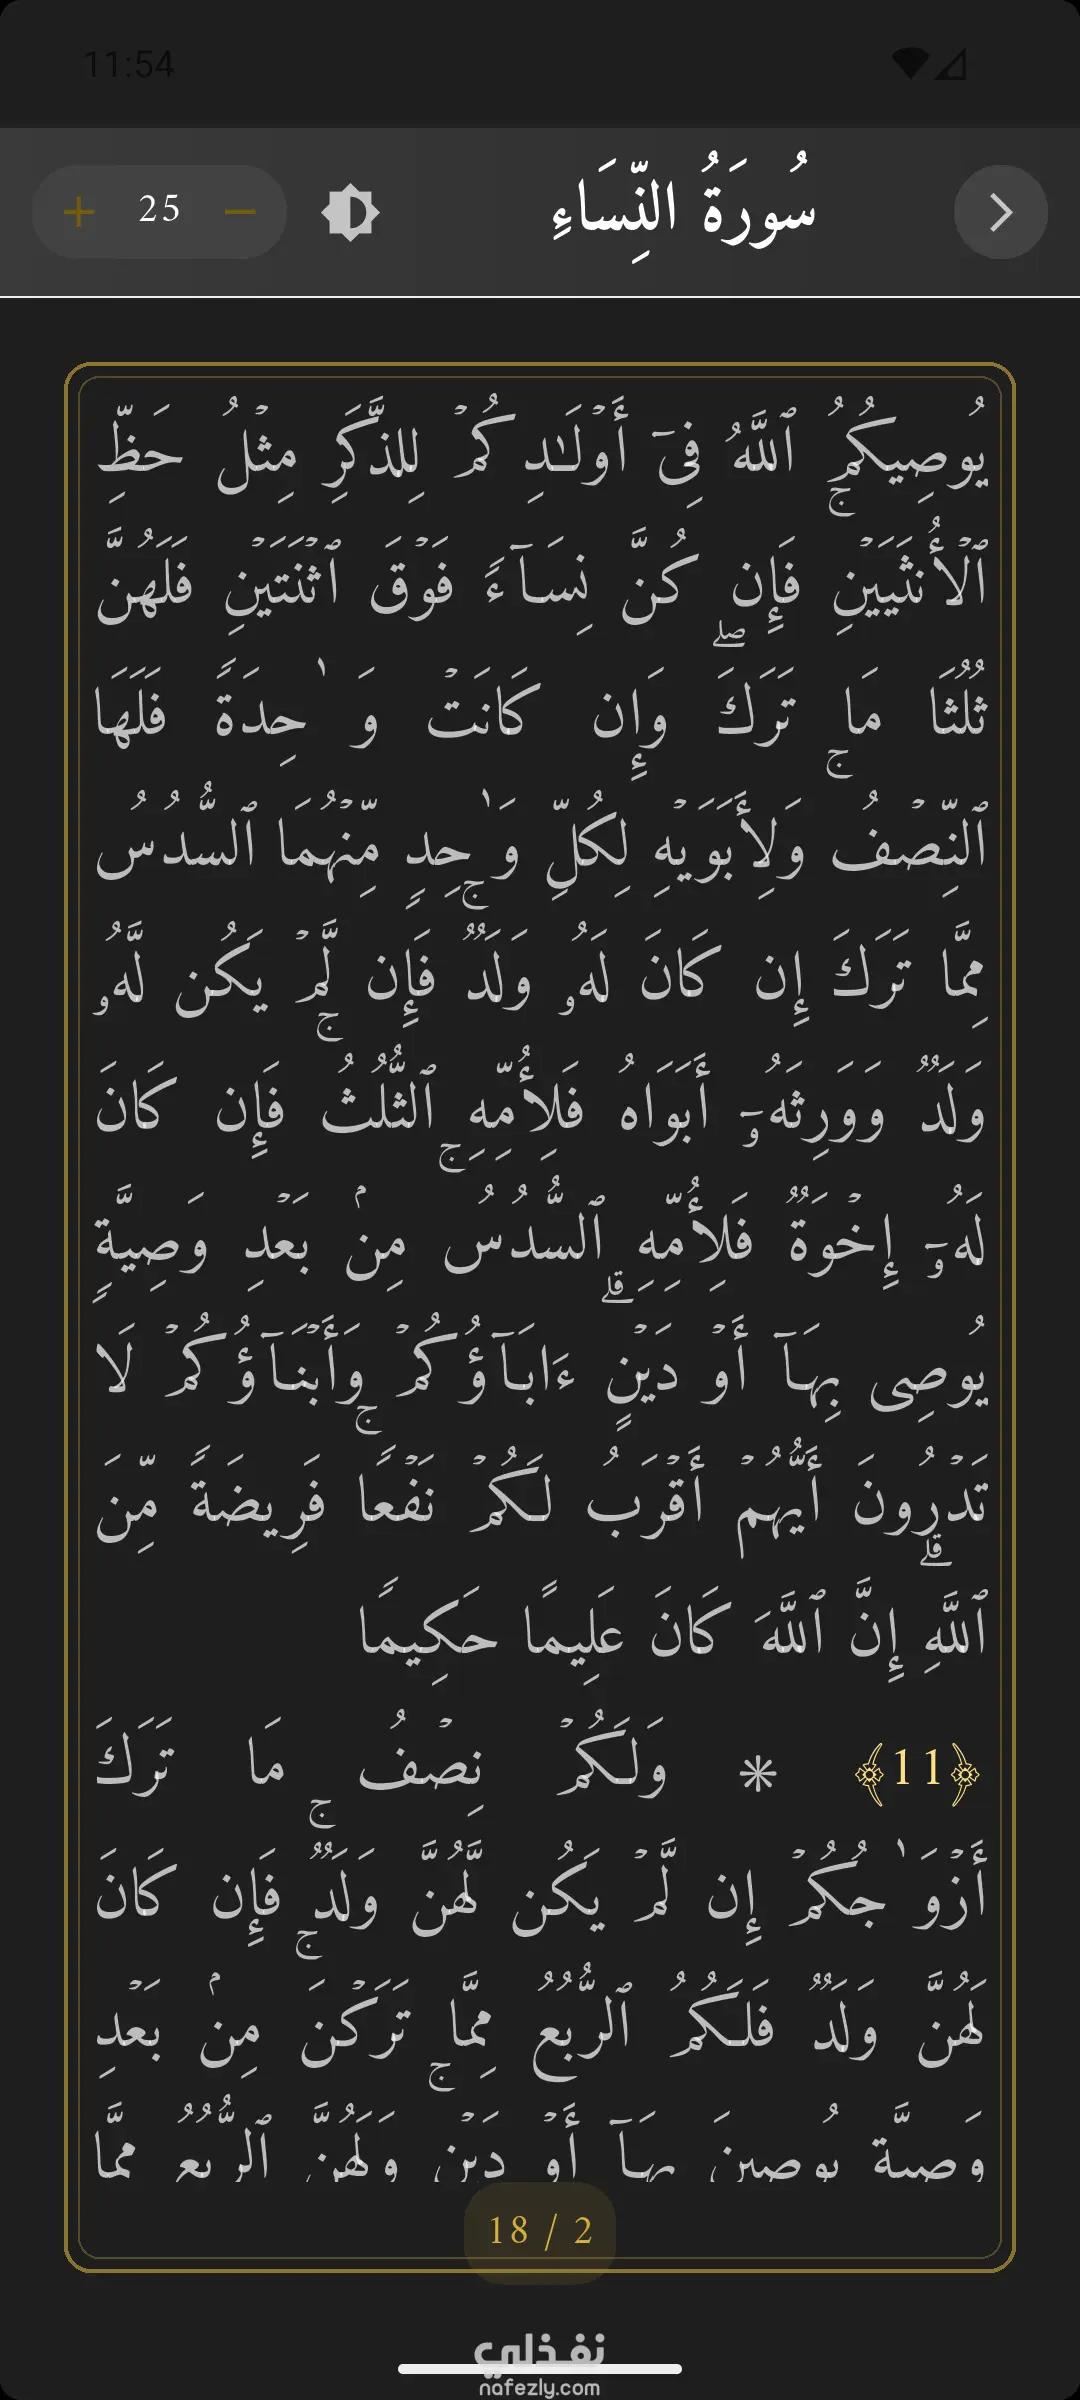 11:54
+ 25 −
سُورَةُ النِّسَاءِ
يُوصِيكُمُ ٱللَّهُ فِىٓ أَوۡلَـٰدِكُمۡۖ لِلذَّكَرِ مِثۡلُ حَظِّ
ٱلۡأُنثَيَيۡنِۚ فَإِن كُنَّ نِسَاۤءً فَوۡقَ ٱثۡنَتَيۡنِ فَلَهُنَّ
ثُلُثَا مَا تَرَكَۖ وَإِن كَانَتۡ وَ ٰحِدَةً فَلَهَا
ٱلنِّصۡفُۚ وَلِأَبَوَيۡهِ لِكُلِّ وَ ٰحِدٍ مِّنۡهُمَا ٱلسُّدُسُ
مِمَّا تَرَكَ إِن كَانَ لَهُۥ وَلَدٌۚ فَإِن لَّمۡ يَكُن لَّهُۥ
وَلَدٌ وَوَرِثَهُۥۤ أَبَوَاهُ فَلِأُمِّهِ ٱلثُّلُثُۚ فَإِن كَانَ
لَهُۥۤ إِخۡوَةٌ فَلِأُمِّهِ ٱلسُّدُسُۚ مِنۢ بَعۡدِ وَصِيَّةٍ
يُوصِى بِهَاۤ أَوۡ دَيۡنٍۗ ءَابَاۤؤُكُمۡ وَأَبۡنَاۤؤُكُمۡ لَا
تَدۡرُونَ أَيُّهُمۡ أَقۡرَبُ لَكُمۡ نَفۡعًاۚ فَرِيضَةً مِّنَ
ٱللَّهِۗ إِنَّ ٱللَّهَ كَانَ عَلِيمًا حَكِيمًا
﴿11﴾ ۞ وَلَكُمۡ نِصۡفُ مَا تَرَكَ
أَزۡوَ ٰجُكُمۡ إِن لَّمۡ يَكُن لَّهُنَّ وَلَدٌۚ فَإِن كَانَ
لَهُنَّ وَلَدٌ فَلَكُمُ ٱلرُّبُعُ مِمَّا تَرَكۡنَۚ مِنۢ بَعۡدِ
وَصِيَّةٍ يُوصِينَ بِهَاۤ أَوۡ دَيۡنٍۚ وَلَهُنَّ ٱلرُّبُعُ مِمَّا
18 / 2
نفذلي
nafezly.com